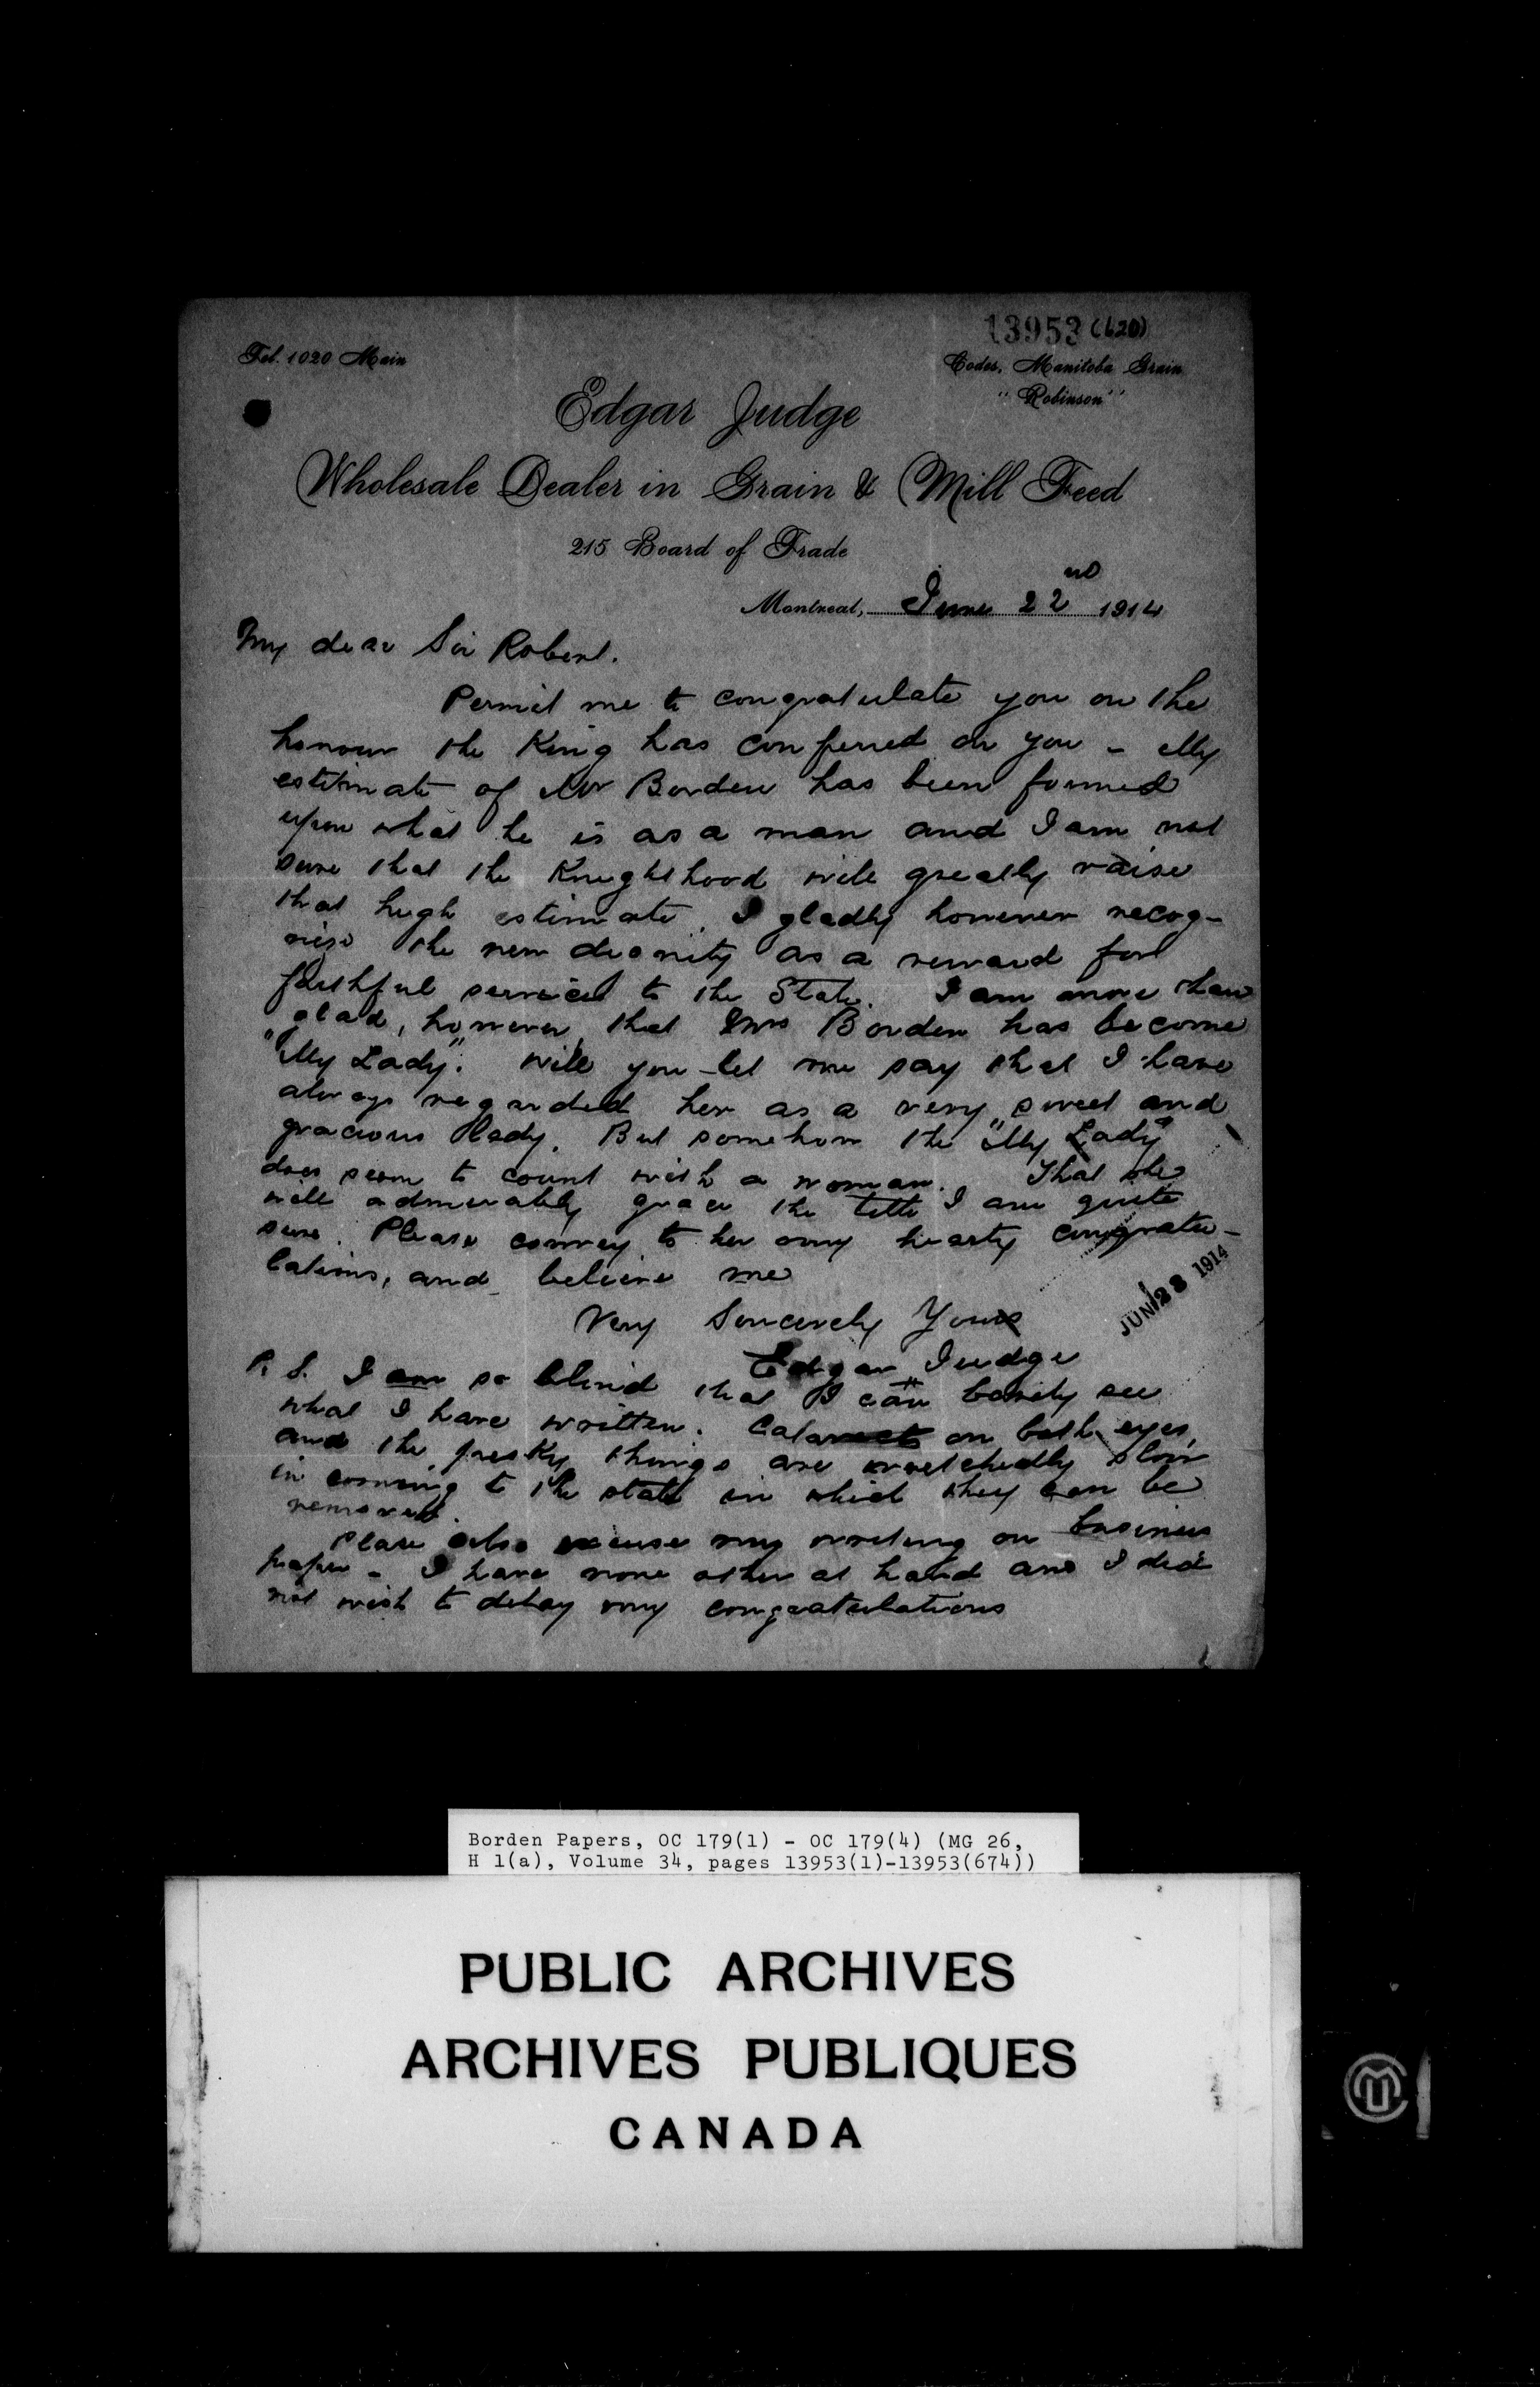 13953 (620)
Tel. 1020 Main
Codes, Manitoba Grain
" Robinson"
Edgar Judge
Wholesale Dealer in Grain & Mill Feed
215 Board of Trade
Montreal, June 22nd 1914
My dear Sir Robert.
Permit me to congratulate you on the
honour the King has conferred on you - My
estimate of Mr Borden has been formed
upon what he is as a man and I am not
sure that the Knighthood will greatly raise
that high estimate. I gladly however recog-
nise the new dignity as a reward for
faithful services to the State. I am more than
glad, however, that Mrs Borden has become
"My Lady". Will you let me say that I have
always regarded her as a very sweet and
gracious lady. But somehow the "My Lady"
does seem to count with a woman. That she
will admirably grace the title I am quite
sure. Please convey to her my hearty congratu-
lations, and believe me
Very Sincerely Yours
Edgar Judge
JUN 23 1914
P. S. I am so blind that I can barely see
what I have written. Cataracts on both eyes,
and the pesky things are wretchedly slow
in coming to the state in which they can be
removed.
Please also excuse my writing on business
paper - I have none other at hand and I did
not wish to delay my congratulations
Borden Papers, OC 179(1) - OC 179(4) (MG 26,
H 1(a), Volume 34, pages 13953(1)-13953(674))
PUBLIC ARCHIVES
ARCHIVES PUBLIQUES
CANADA